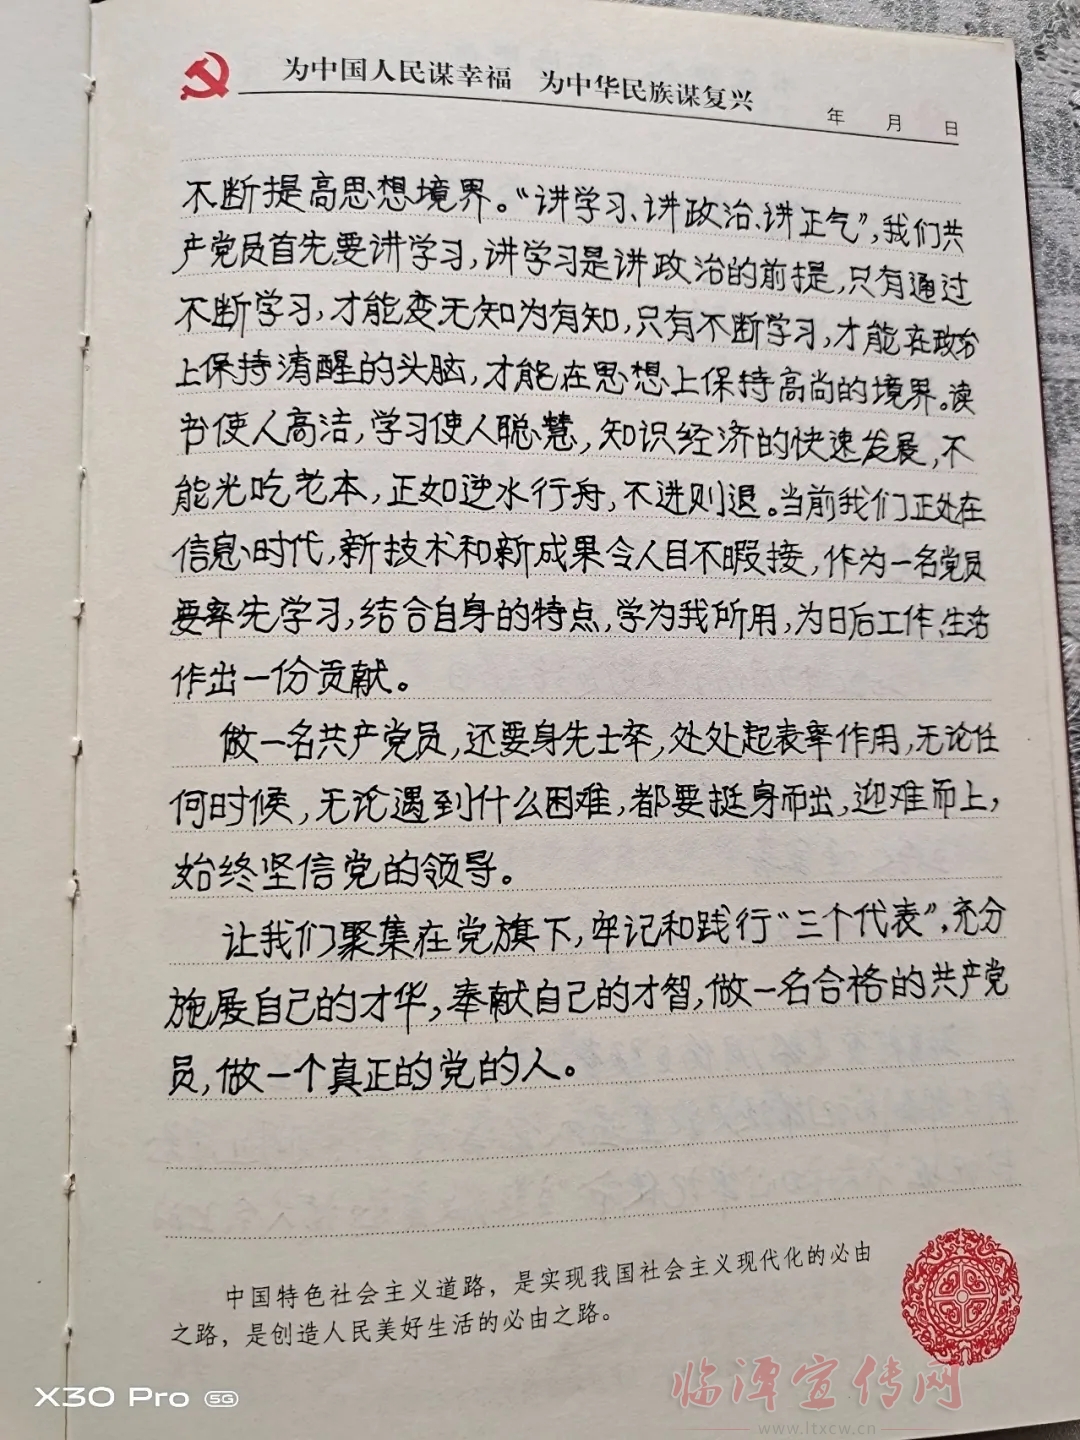 为中国人民谋幸福 为中华民族谋复兴
年 月 日
不断提高思想境界。“讲学习、讲政治、讲正气”，我们共
产党员首先要讲学习，讲学习是讲政治的前提，只有通过
不断学习，才能变无知为有知，只有不断学习，才能在政治
上保持清醒的头脑，才能在思想上保持高尚的境界。读
书使人高洁，学习使人聪慧，知识经济的快速发展，不
能光吃老本，正如逆水行舟，不进则退。当前我们正处在
信息时代，新技术和新成果令人目不暇接，作为一名党员
要率先学习，结合自身的特点，学为我所用，为日后工作、生活
作出一份贡献。
做一名共产党员，还要身先士卒，处处起表率作用，无论任
何时候，无论遇到什么困难，都要挺身而出，迎难而上，
始终坚信党的领导。
让我们聚集在党旗下，牢记和践行“三个代表”，充分
施展自己的才华，奉献自己的才智，做一名合格的共产党
员，做一个真正的党的人。
中国特色社会主义道路，是实现我国社会主义现代化的必由
之路，是创造人民美好生活的必由之路。
临潭宣传网
www.ltxcw.cn
X30 Pro 5G